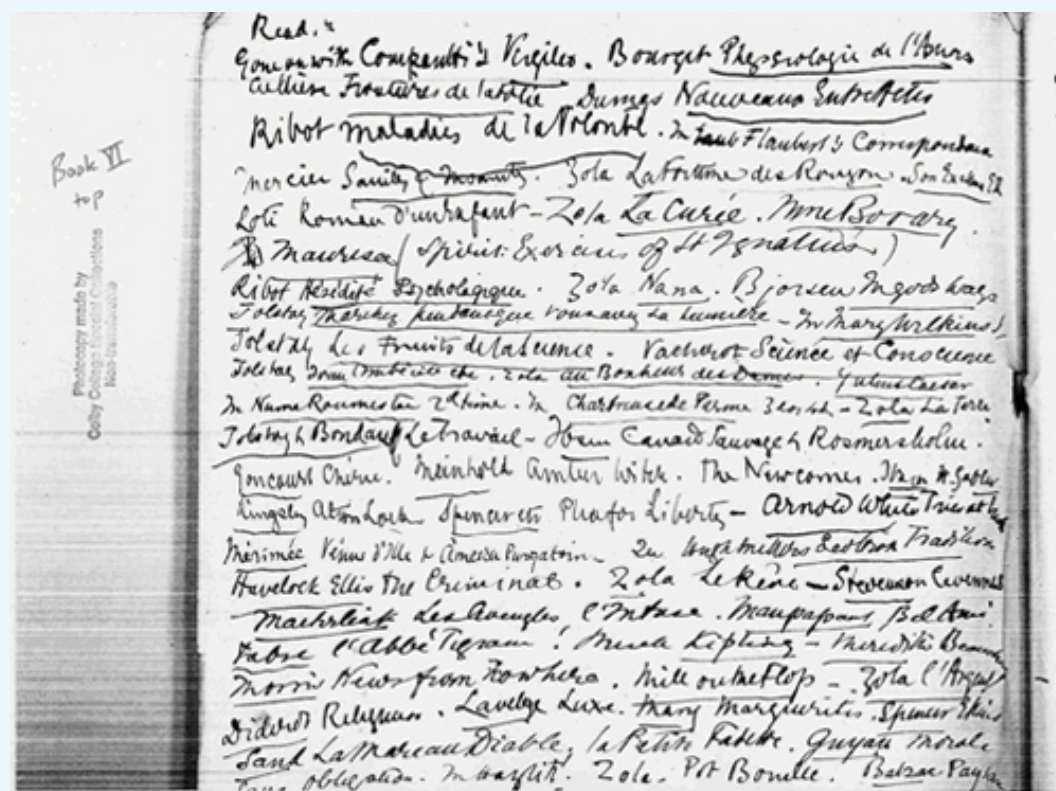 Read.
Gone on with Comparetti's Vergileo. Bourget Physiologie de l'Amour
Cullère Frontières de la folie Dumas Nouveaux Entr'Actes
Ribot maladies de la Volonté. In Flaubert's Correspondance
Mercier Sanity & Insanity. Zola La Fortune des Rougon. Son Exc. Eug.
Loti Roman d'un enfant - Zola La Curée. Mme Bovary.
Maurice (Spirit. Exercises of St Ignatius)
Ribot Hérédité Psychologique. Zola Nana. Bjorsen In gods ways
Tolstoy Marchez pendant que vous avez la lumière - In Mary Wilkins's
Tolstoy Les Fruits de la Science. Vacherot Science et Conscience
Tolstoy Zola au Bonheur des Dames. Julius Caesar
In Numa Roumestan 2d time. In Chartreuse de Parme - Zola La Terre
Tolstoy & Bondareff Le travail - Ibsen Canard Sauvage & Rosmersholm.
Goncourt Chérie. Meinhold Amber Witch. The Newcomes. Ibsen H. Gabler
Kingsley Alton Locke Spencer etc Plea for Liberty - Arnold White Tries at
Mérimée Vénus d'Ille & Ames du Purgatoire - In Hugh Millers Tradition
Havelock Ellis The Criminal. Zola Le Rêve - Stevenson Cevennes
Maeterlink Les Aveugles, l'Intuse. Maupassant, Bel Ami.
Fabre l'Abbé Tigrane! Much Kipling - Meredith Beauch
Morris News from Nowhere. Mill on the Flop - Zola l'Argent
Diderot Religieuse. Lavelye Luxe. Mary Marguerites. Spencer
Sand La Mare au Diable, la Petite Fadette. Guyau Morale
sans obligation. In Hazlitt. Zola. Pot Bouille. Balzac
Book VI
top
Photocopy made by
Colby College Special Collections
Non-transferable